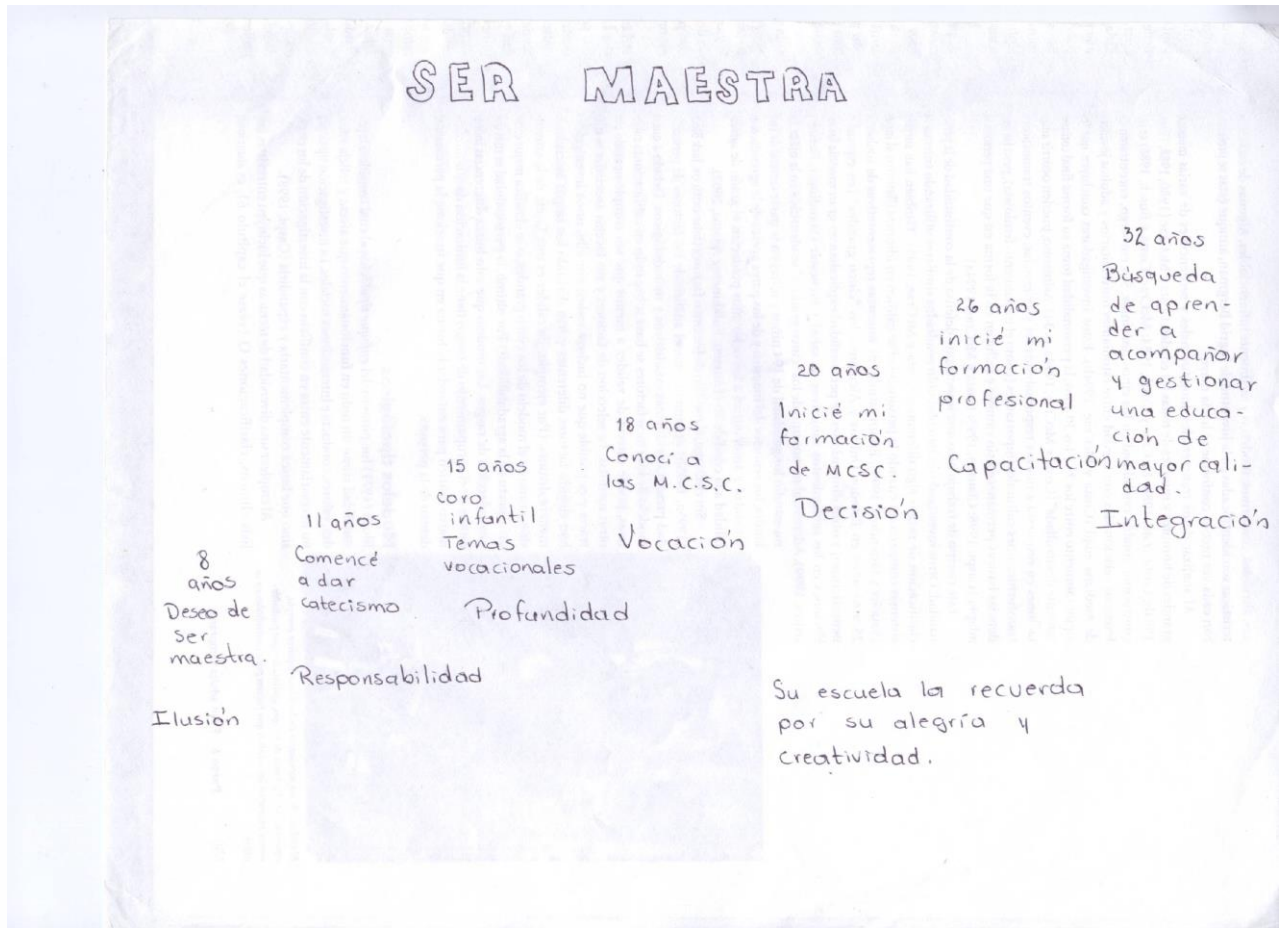 SER MAESTRA
8
años
Deseo de
ser
maestra.
Ilusión
11 años
Comencé
a dar
catecismo
Responsabilidad
15 años
coro
infantil
Temas
vocacionales
Profundidad
18 años
Conocí a
las M.C.S.C.
Vocación
20 años
Inicié mi
formación
de MCSC.
Decisión
26 años
inicié mi
formación
profesional
Capacitación
32 años
Búsqueda
de apren-
der a
acompañar
y gestionar
una educa-
ción de
mayor cali-
dad.
Integración
Su escuela la recuerda
por su alegría y
creatividad.